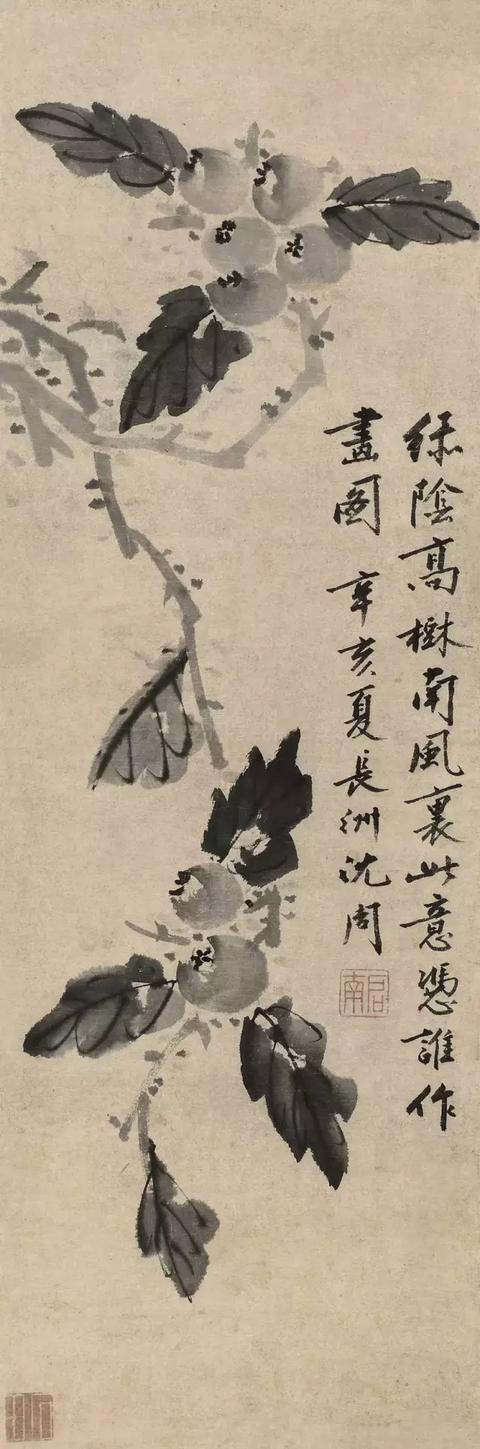 緑陰高樹南風裏此意憑誰作
畫圖 辛亥夏長洲沈周
啓南